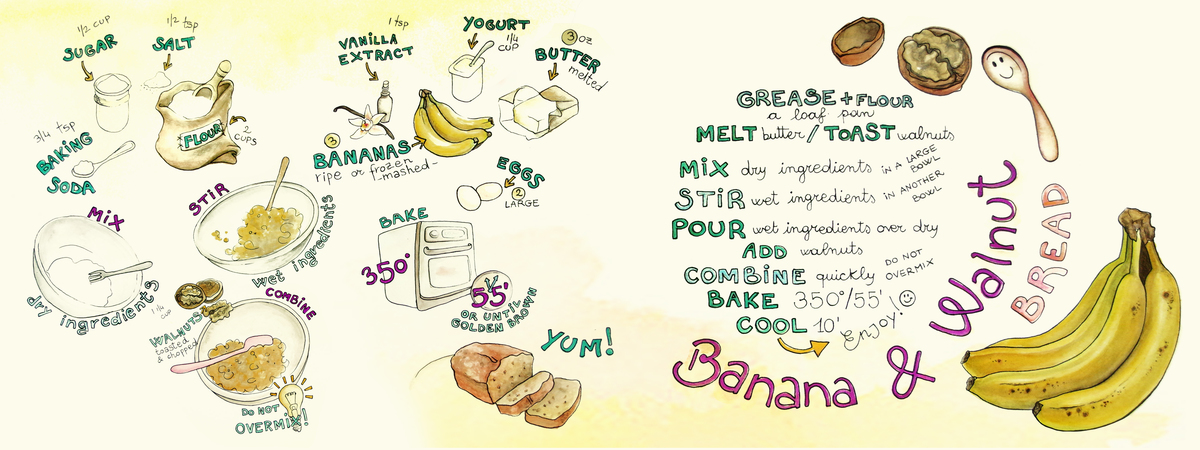 1/2 CUP
SUGAR
1/2 tsp
SALT
3/4 tsp
BAKING
SODA
FLOUR
2
CUPS
1 tsp
VANILLA
EXTRACT
YOGURT
1/4
CUP
3 OZ
BUTTER
melted
3
BANANAS
ripe or frozen
-mashed-
EGGS
2
LARGE
MIX
dry ingredients
STIR
wet ingredients
COMBINE
1 1/4
CUP
WALNUTS
toasted
& chopped
DO NOT
OVERMIX!
BAKE
350°
55'
OR UNTIL
GOLDEN BROWN
YUM!
GREASE + FLOUR
a loaf pan
MELT butter / TOAST walnuts
MIX dry ingredients IN A LARGE BOWL
STIR wet ingredients IN ANOTHER BOWL
POUR wet ingredients over dry
ADD walnuts
COMBINE quickly DO NOT OVERMIX
BAKE 350°/55'
COOL 10' enjoy!
Banana & Walnut
BREAD